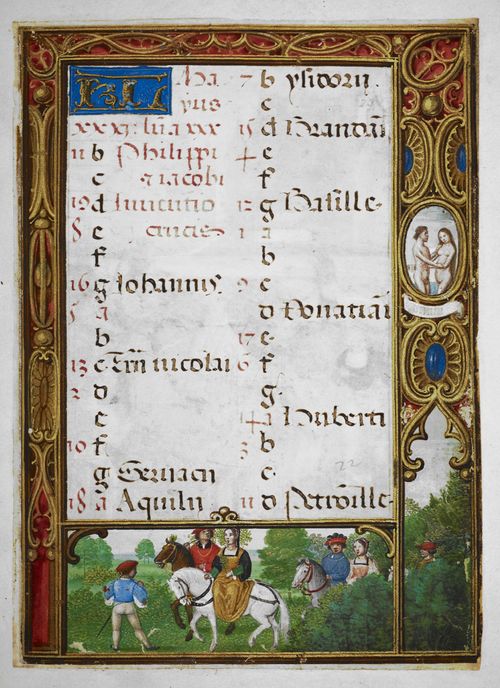 KL Ma
yus
xxxi luna xxx
11 b Philippi
c iacobi
19 d Inuentio
8 e crucis
f
16 g Iohannis
5 a
b
13 c nicolai
2 d
e
10 f
g Seruacii
18 a Aquilii
7 b ysidorii
c
15 d Brandani
4 e
f
12 g Basille
1 a
b
9 c
d Donatiani
17 e
6 f
g
14 a Huberti
3 b
22
c
11 d Petronille